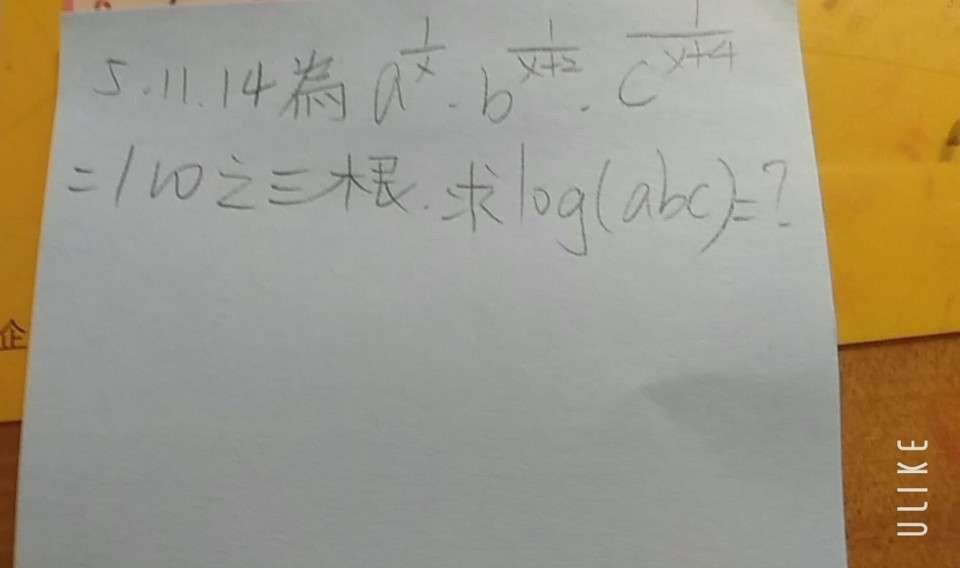 5.11.14為 a^{\frac{1}{x}} · b^{\frac{1}{x+2}} · c^{\frac{1}{x+4}}
=100之三根.求log(abc)=?
企
ULIKE